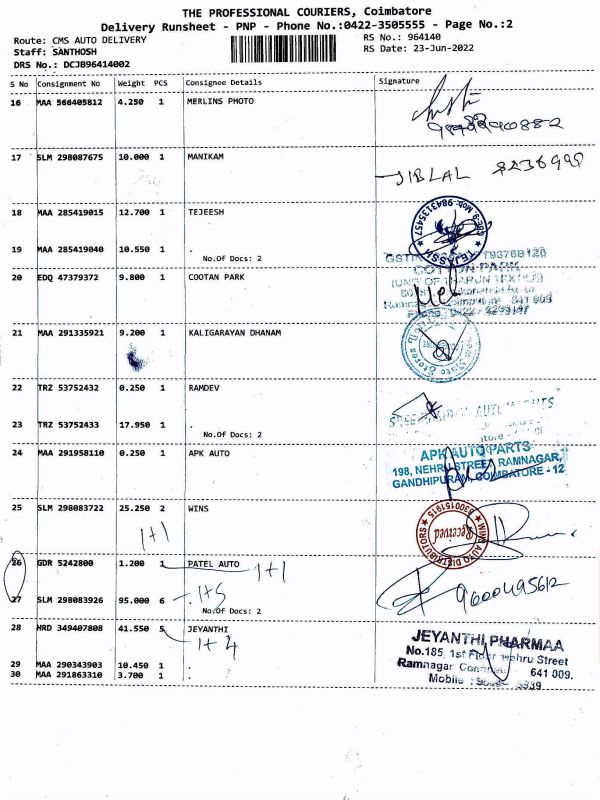 THE PROFESSIONAL COURIERS, Coimbatore
Delivery Runsheet - PNP - Phone No.:0422-3505555 - Page No.:2
Route: CMS AUTO DELIVERY
RS No.: 964140
Staff: SANTHOSH
RS Date: 23-Jun-2022
DRS No.: DCJB96414002
S No Consignment No Weight PCS Consignee Details Signature
16 MAA 566405812 4.250 1 MERLINS PHOTO
17 SLM 298087675 10.000 1 MANIKAM
JIBLAL
18 MAA 285419015 12.700 1 TEJEESH
CBE-9. Mob: 9843135457
TEJESSH
19 MAA 285419040 10.550 1 .
No.Of Docs: 2
20 EDQ 47379372 9.800 1 COOTAN PARK
COTTON PARK
21 MAA 291335921 9.200 1 KALIGARAYAN DHANAM
22 TRZ 53752432 0.250 1 RAMDEV
23 TRZ 53752433 17.950 1 .
No.Of Docs: 2
24 MAA 291958110 0.250 1 APK AUTO
APK AUTO PARTS
198, NEHRU STREET, RAMNAGAR,
GANDHIPURAM, COIMBATORE - 12
25 SLM 298083722 25.250 2 WINS
1+1
WINS AUTO DISTRIBUTORS
8300151915
Received
26 GDR 5242800 1.200 1 PATEL AUTO
1+1
27 SLM 298083926 95.000 6 .
1+5
No.Of Docs: 2
9600495612
28 HRD 349407808 41.550 5 JEYANTHI
1+4
JEYANTHI PHARMAA
No.185, 1st Floor Nehru Street
Ramnagar 641 009.
Mobile
29 MAA 290343903 10.450 1 .
30 MAA 291863310 3.700 1 .